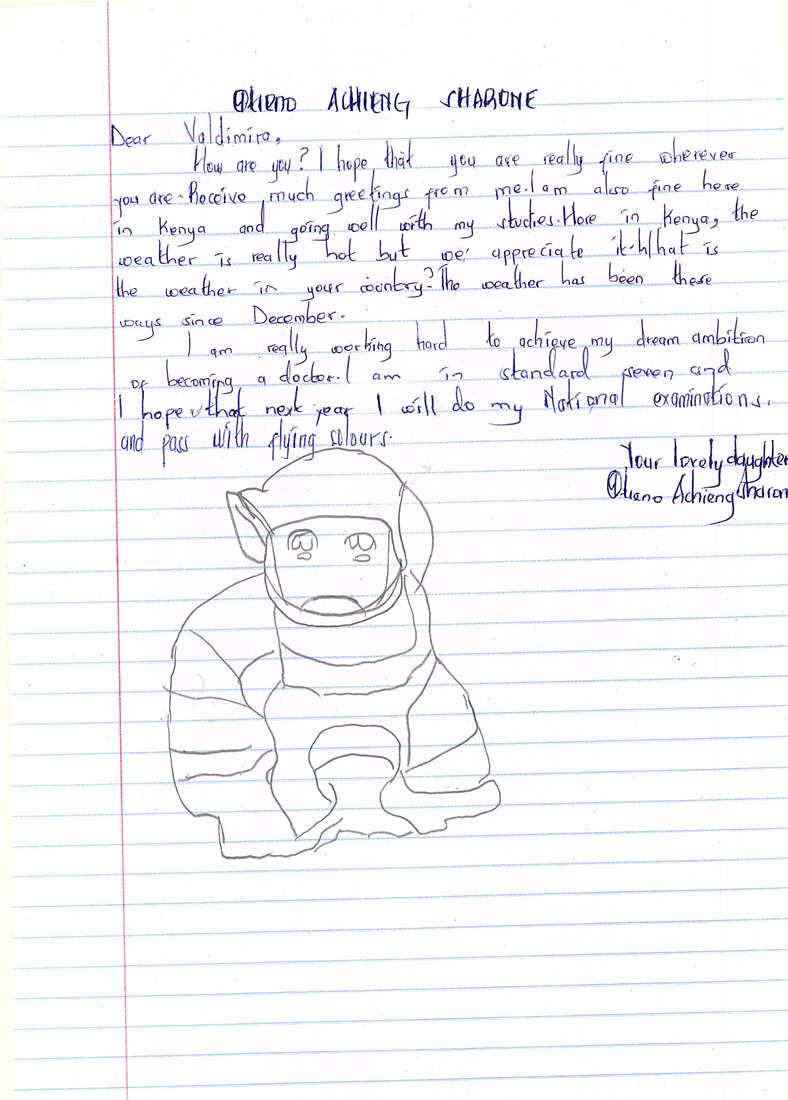 OLIENO ACHIENG SHARONE
Dear Valdimira,
How are you? I hope that you are really fine wherever
you are. Receive much greetings from me. I am also fine here
in Kenya and going well with my studies. Here in Kenya, the
weather is really hot but we appreciate it. What is
the weather in your country? The weather has been these
ways since December.
I am really working hard to achieve my dream ambition
of becoming a doctor. I am in standard seven and
I hope that next year I will do my National examinations.
and pass with flying colours.
Your lovely daughter
Achieng Sharon